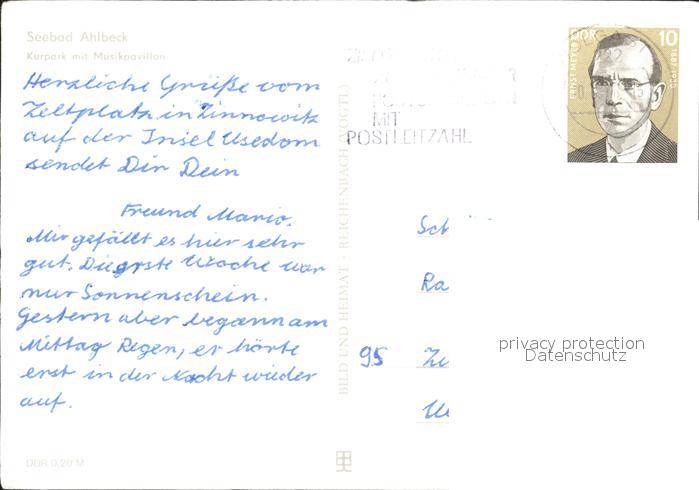 Seebad Ahlbeck
Kurpark mit Musikpavillon
Herzliche Grüße vom
Zeltplatz in Zinnowitz
auf der Insel Usedom
sendet Dir Dein
Freund Mario.
Mir gefällt es hier sehr
gut. Die erste Woche war
nur Sonnenschein.
Gestern aber begann am
Mittag Regen, er hörte
erst in der Nacht wieder
auf.
DDR 0,20 M
BILD UND HEIMAT · REICHENBACH (VOGTL)
MIT
POSTLEITZAHL
DDR 10
ERNST MEYER 1887-1930
Sch
Ra
95 Zw
privacy protection
Datenschutz